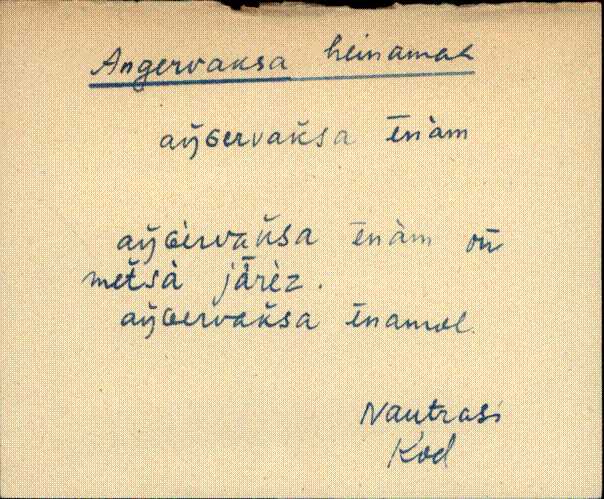 Angervaksa heinamaa
aŋɢervak̆sa īnàm
aŋɢèrvak̆sa īnàm oň
met̆sà jǟrèz.
aŋɢervak̆sa īnamol.
Nautrasi
Kod